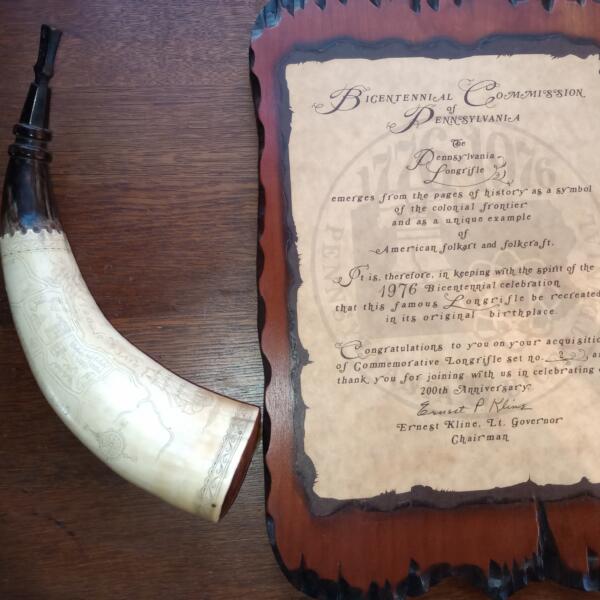 Bicentennial Commission
of
Pennsylvania
The
Pennsylvania
Longrifle
emerges from the pages of history as a symbol
of the colonial frontier
and as a unique example
of
American folkart and folkcraft.
It is, therefore, in keeping with the spirit of the
1976 Bicentennial celebration
that this famous Longrifle be recreated
in its original birthplace.
Congratulations to you on your acquisitio
of Commemorative Longrifle set no. 2, an
thank you for joining with us in celebrating o
200th Anniversary.
Ernest P Kline
Ernest Kline, Lt. Governor
Chairman
1776 1976